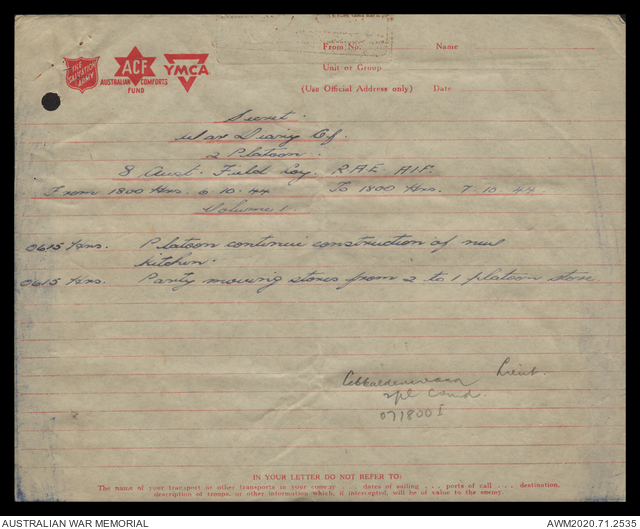 THE SALVATION ARMY
ACF
AUSTRALIAN COMFORTS FUND
YMCA
From No. Name
Unit or Group
(Use Official Address only) Date
Secret.
War Diary Of
2 Platoon.
8 Aust. Field Coy. RAE AIF.
From 1800 Hrs. 6.10.44 To 1800 Hrs. 7.10.44
Volume 1.
0615 Hrs. Platoon continue construction of new
kitchen.
0615 Hrs. Party moving stores from 2 to 1 platoon store.
Lieut.
2pl Comd.
071800I
IN YOUR LETTER DO NOT REFER TO:
The name of your transport or other transports in your convoy . . . dates of sailing . . . ports of call . . . destination,
description of troops, or other information which, if intercepted, will be of value to the enemy.
AUSTRALIAN WAR MEMORIAL
AWM2020.71.2535